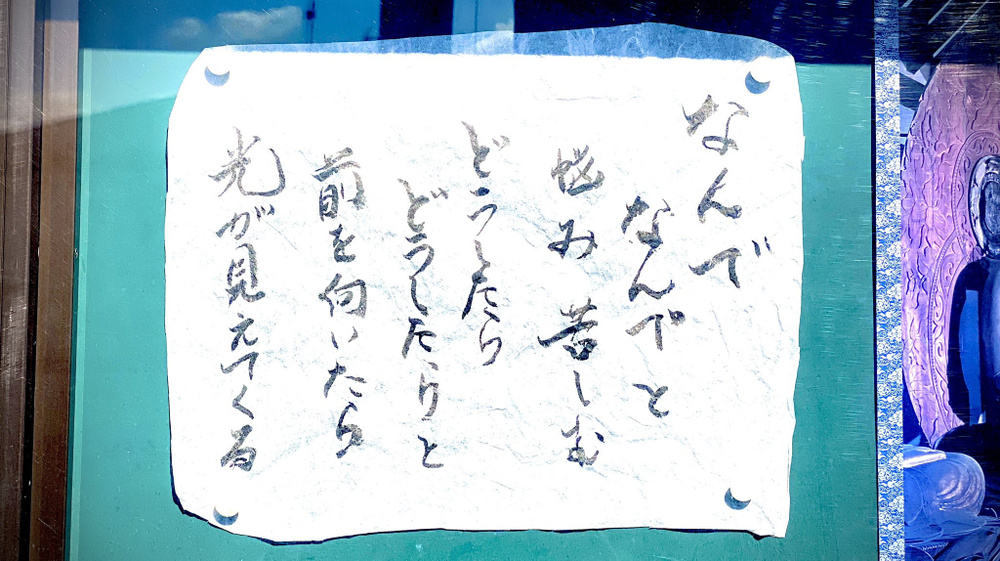 なんで
なんでと
悩み苦しむ
どうしたら
どうしたらと
前を向いたら
光が見えてくる